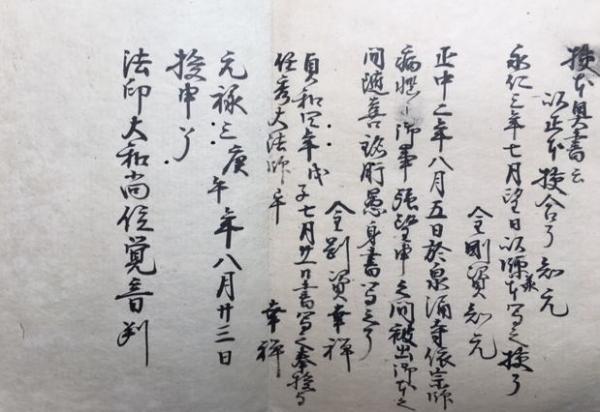 授本奥書云
以正本授合了 知元
永仁三年七月望日以師兼本写之授了
金剛資知元
正中二年八月五日於泉涌寺依宗師
病惱御事強望申之間被出御本之
間随喜銘肝愚身書写之了
金剛資幸禅
貞和四年戊子七月廿一日書写之奉授与
任秀大法師年
幸禅
元禄三庚午年八月廿三日
授申了
法印大和尚位覚音判